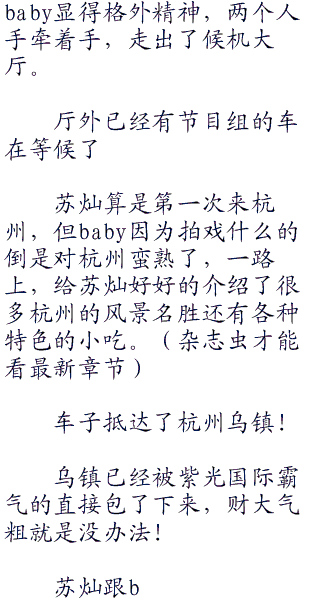 baby显得格外精神，两个人
手牵着手，走出了候机大
厅。
厅外已经有节目组的车
在等候了
苏灿算是第一次来杭
州，但baby因为拍戏什么的
倒是对杭州蛮熟了，一路
上，给苏灿好好的介绍了很
多杭州的风景名胜还有各种
特色的小吃。（杂志虫才能
看最新章节）
车子抵达了杭州乌镇！
乌镇已经被紫光国际霸
气的直接包了下来，财大气
粗就是没办法！
苏灿跟b